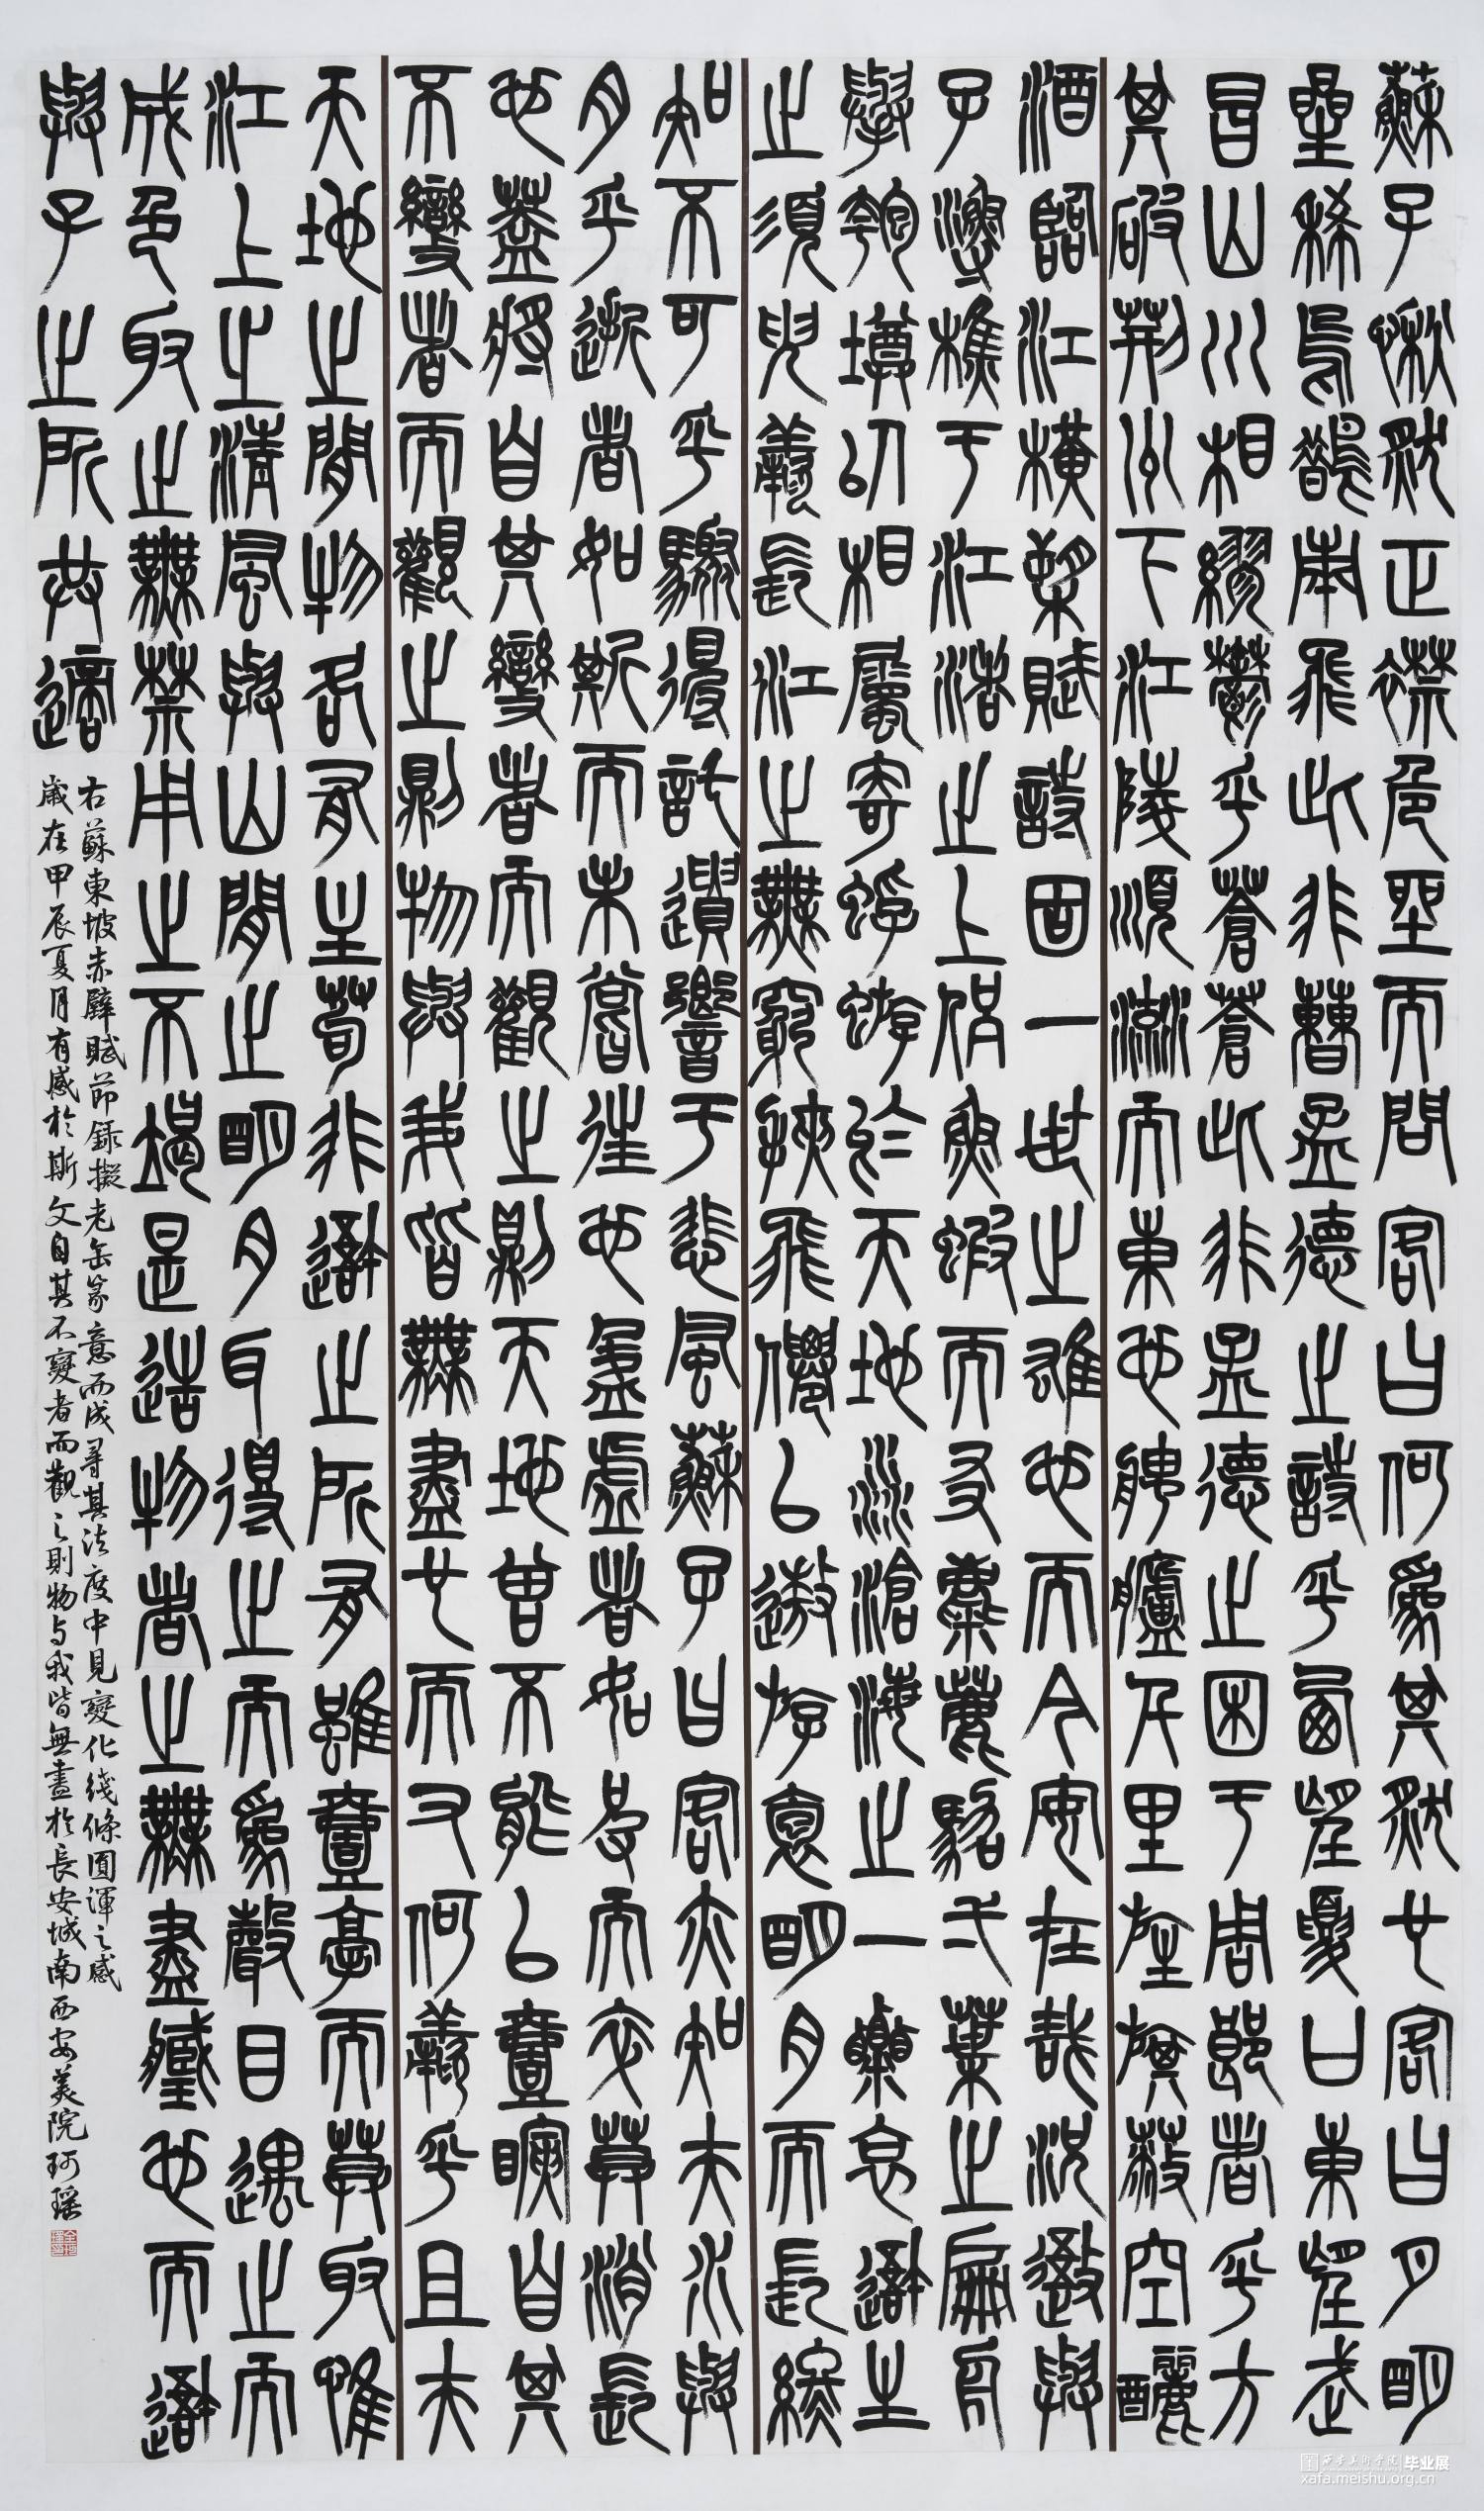 蘇子愀然正襟危坐而問客曰何為其然也客曰月明
星稀烏鵲南飛此非曹孟德之詩乎西望夏口東望武
昌山川相繆鬱乎蒼蒼此非孟德之困于周郎者乎方
其破荊州下江陵順流而東也舳艫千里旌旗蔽空釃
酒臨江橫槊賦詩固一世之雄也而今安在哉況吾與
子漁樵于江渚之上侶魚蝦而友麋鹿駕弌葉之扁舟
舉匏樽以相屬寄蜉蝣於天地渺滄海之一粟哀吾生
之須臾羨長江之無窮挾飛僊以遨游抱明月而長終
知不可乎驟得託遺響于悲風蘇子曰客亦知夫水與
月乎逝者如斯而未嘗往也盈虛者如彼而卒莫消長
也蓋將自其變者而觀之則天地曾不能以壹瞬自其
不變者而觀之則物與我皆無盡也而又何羨乎且夫
天地之間物各有主苟非吾之所有雖壹毫而莫取惟
江上之清風與山間之明月耳得之而為聲目遇之而
成色取之無禁用之不竭是造物者之無盡藏也而吾
與子之所共適
右蘇東坡赤壁賦節錄擬老缶篆意而成尋其法度中見變化线條圓渾之感
歲在甲辰夏月有感於斯文自其不變者而觀之則物与我皆無盡於長安城南西安美院珂瑶
西安美术学院 毕业展
xafa.meishu.org.cn